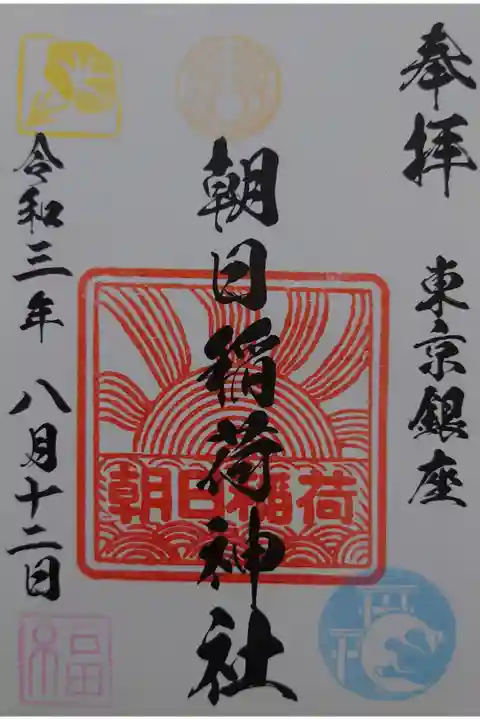 奉拝
東京銀座
朝日稲荷神社
朝日稲荷
令和三年 八月十二日
福